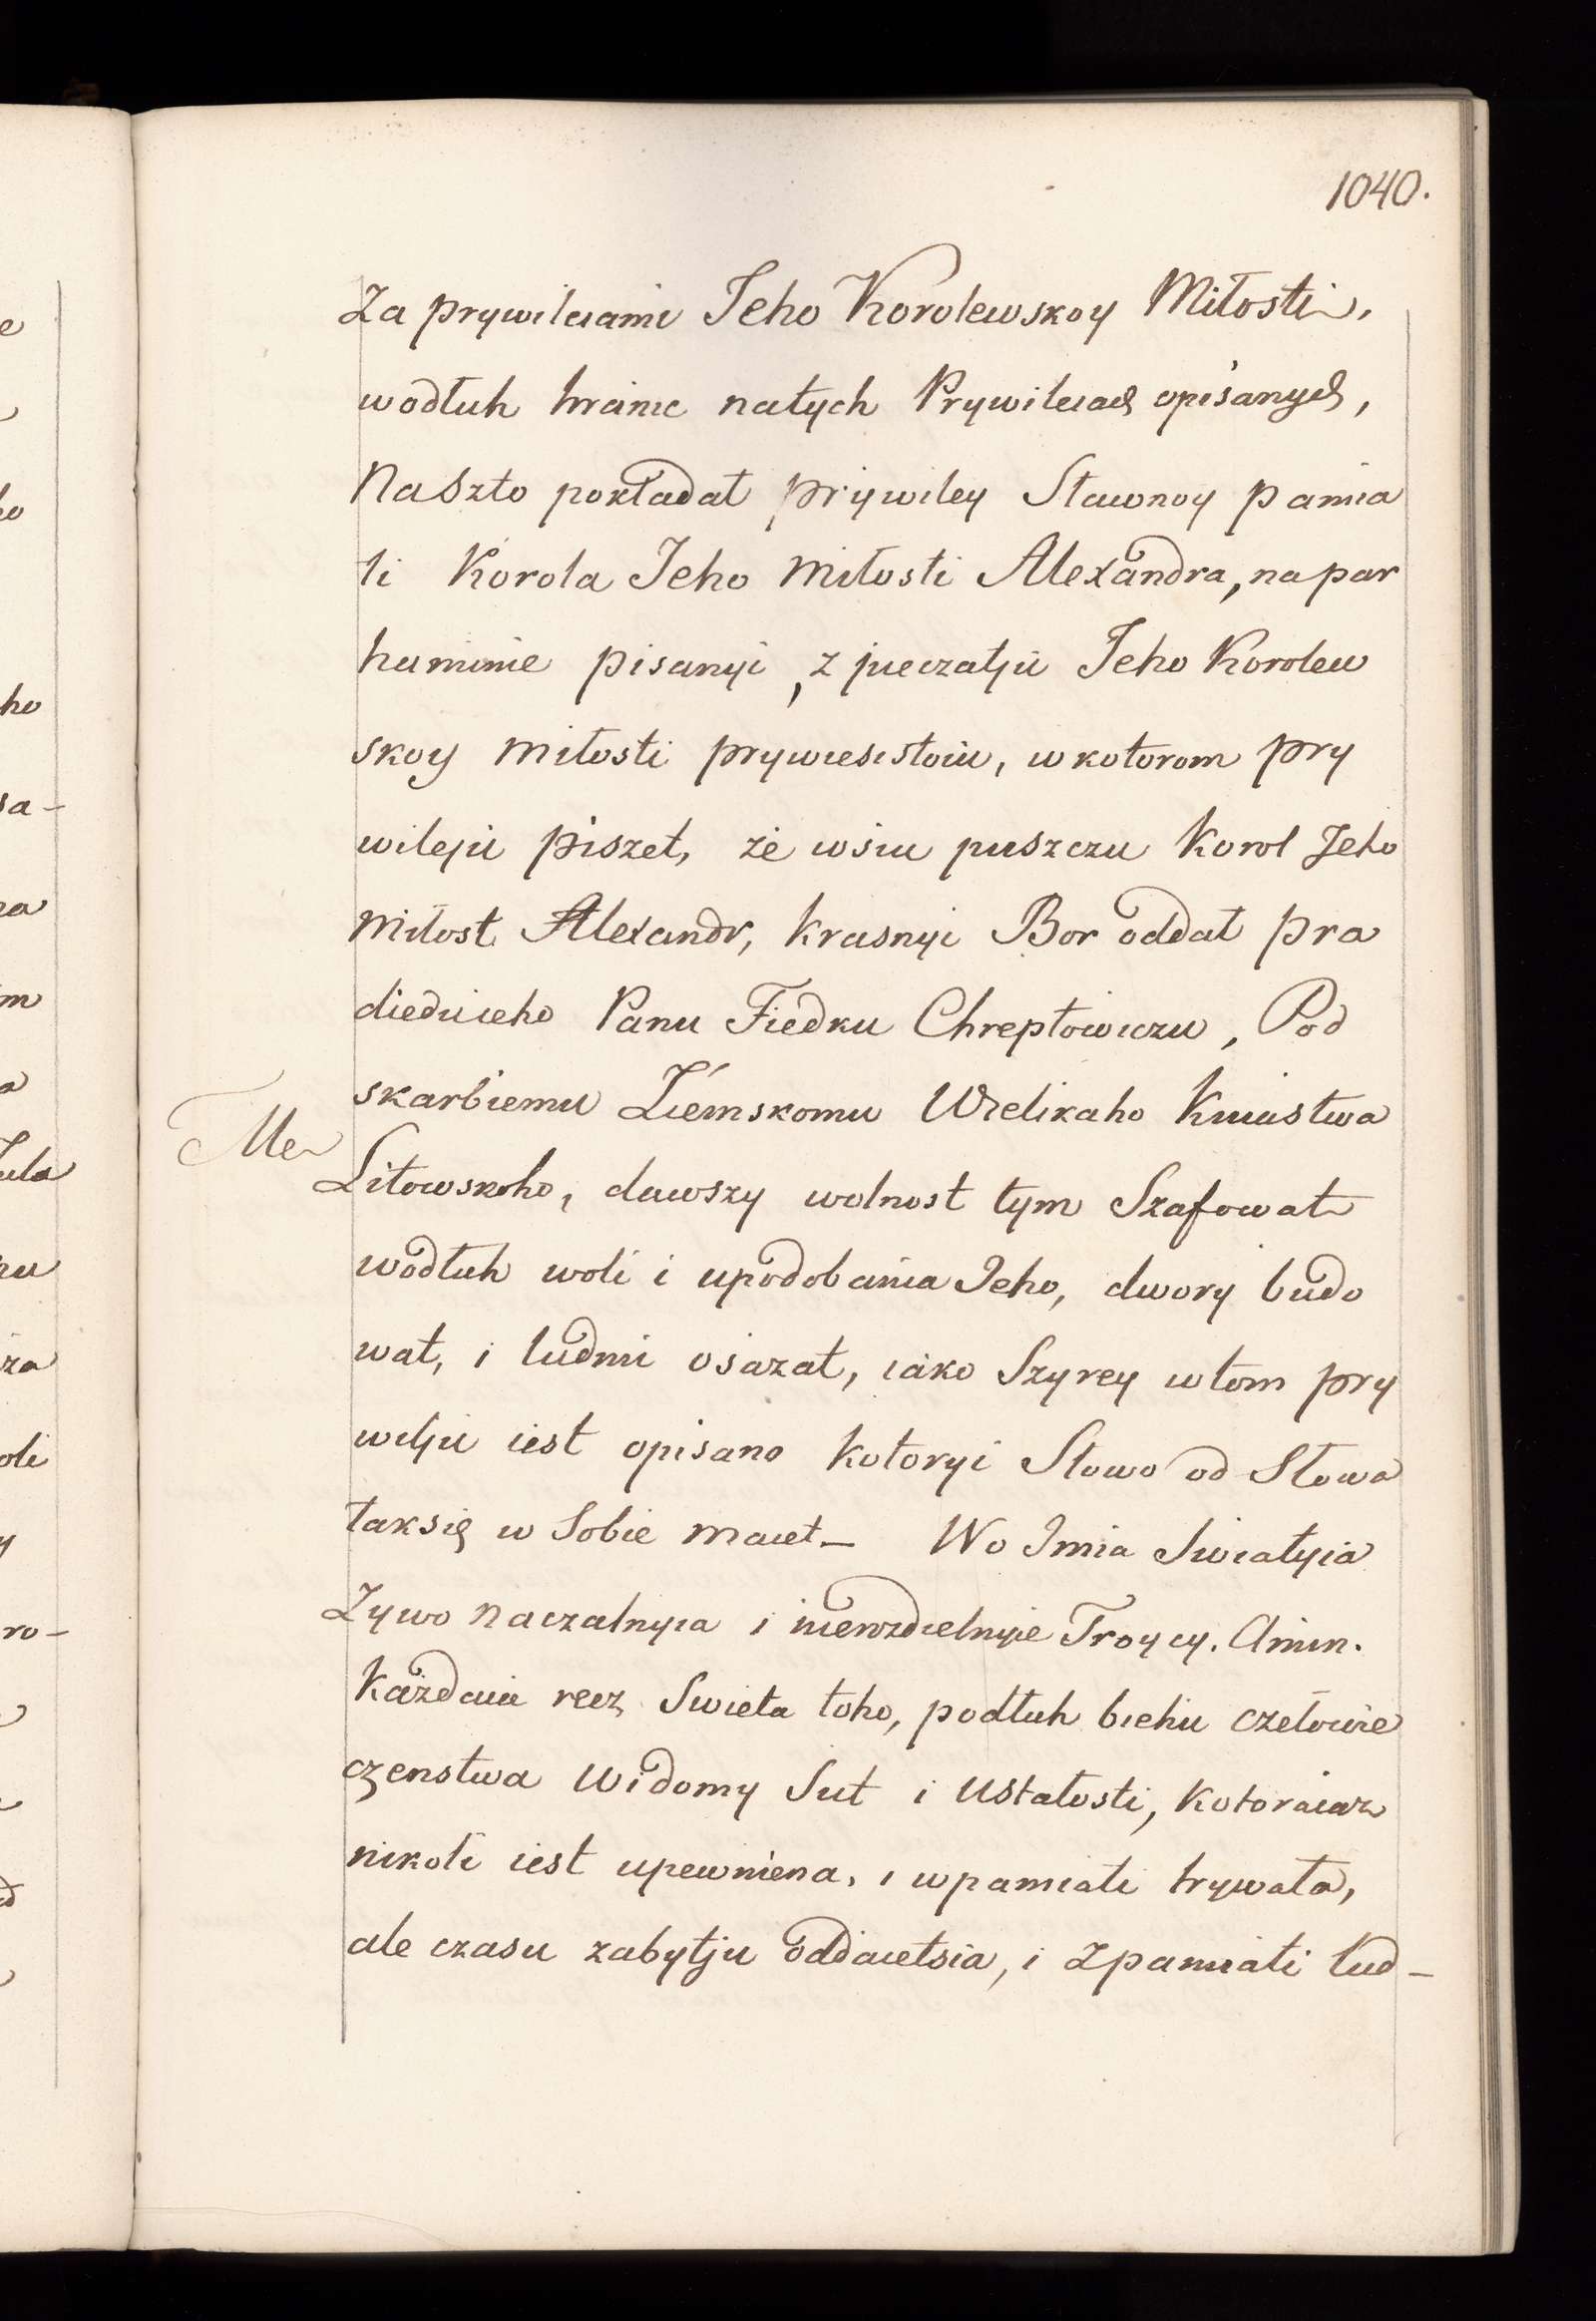 1040.
Za prywileiami Jeho Korolewskoy Miłosti,
wodłuh hranic natych Prywileiach opisanych,
Naszto pokładał prywiley Sławnoy pamia
ti Korola Jeho Miłosti Alexandra, na par
haminie pisanyi, z pieczatju Jeho Korolew
skoy miłosti prywiesistoiu, w kotorom pry
wileju piszet, że wsiu puszczu Korol Jeho
Miłost Alexandr, krasnyi Bor oddał pra
diedu ieho Panu Fiedku Chreptowiczu, Pod
skarbiemu Ziemskomu Wielikaho Kniastwa
Litowskoho, dawszy wolnost tym Szafowat
wodłuh woli i upodobania Jeho, dwory budo
wat, i ludmi osażat, iako Szyrey w tom pry
wilju iest opisano kotoryi Słowo od Słowa
tak się w Sobie maiet – Wo Imia Swiatyia
Żywo naczalnyia i nierozdielnyie Troycy. Amin.
Każdaia recz Swieta toho, podłuh biehu czełowie
czenstwa widomy Sut i ustałosti, kotoraiaż
nikoli iest upewniena, i w pamiati trywała,
ale czasu zabytju oddaietsia, i z pamiati lud–
e
ho
sa–
m
a
za
oli
y
ro–